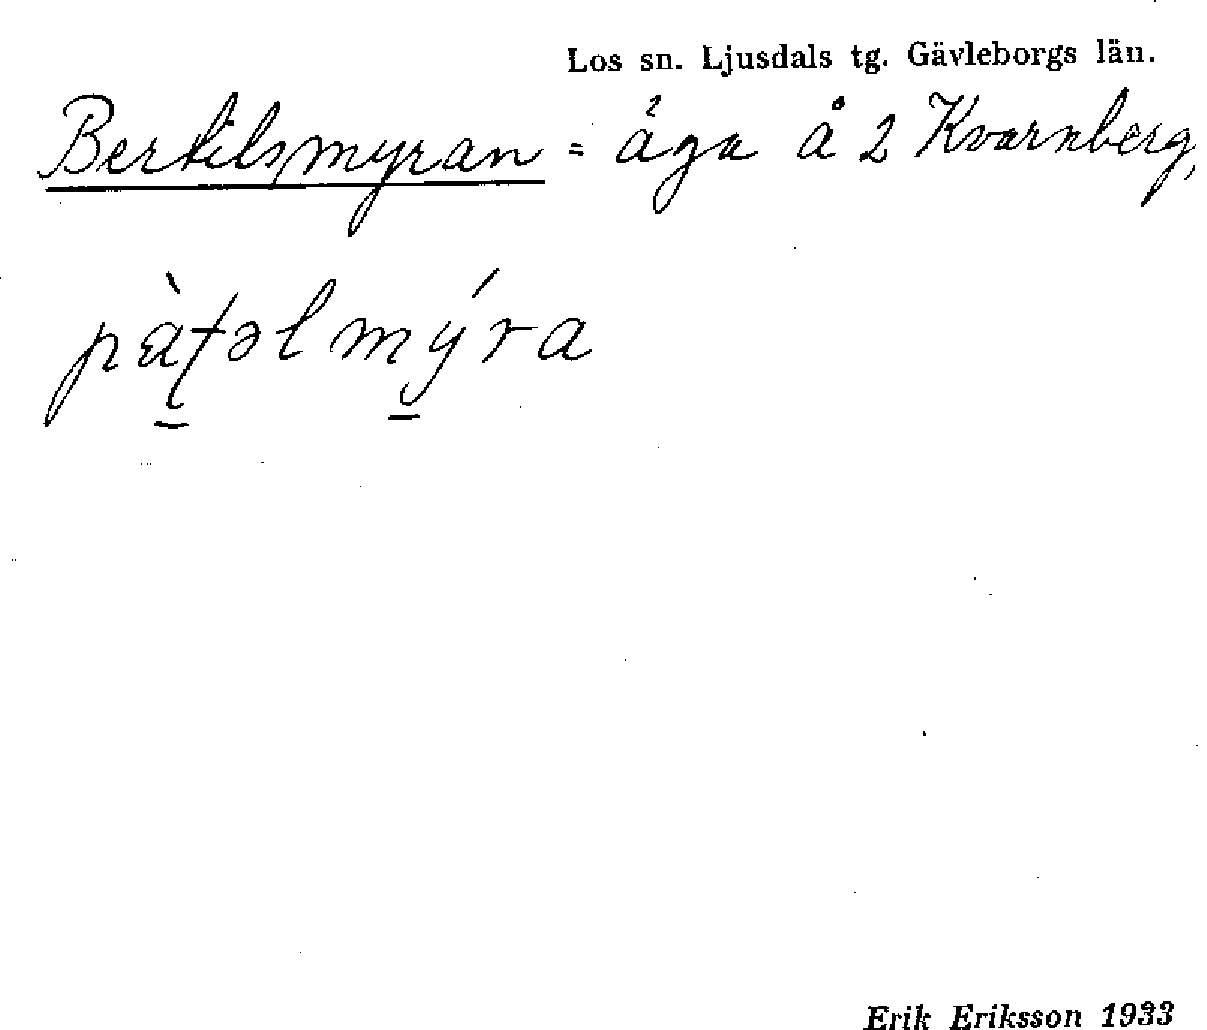 Los sn. Ljusdals tg. Gävleborgs län.
Bertilsmyran = äga å 2 Kvarnberg,
pàtəlmýra
Erik Eriksson 1933